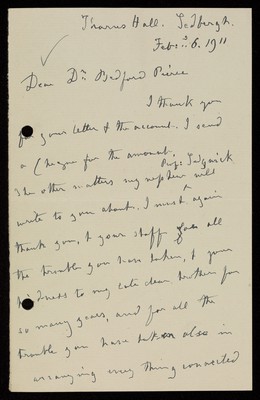 Tharns Hall. Sedbergh.
Feb: 6. 1911
Dear Dr. Bedford Pierce
I thank you
for your letter & the account. I send
a Cheque for the amount.
The other matters my nephew Prof: Sedgwick will
write to you about. I must again
thank you, & your staff for all
the trouble you have taken, & your
kindness to my late dear brother for
so many years, and for all the
trouble you have taken also in
arranging every thing connected